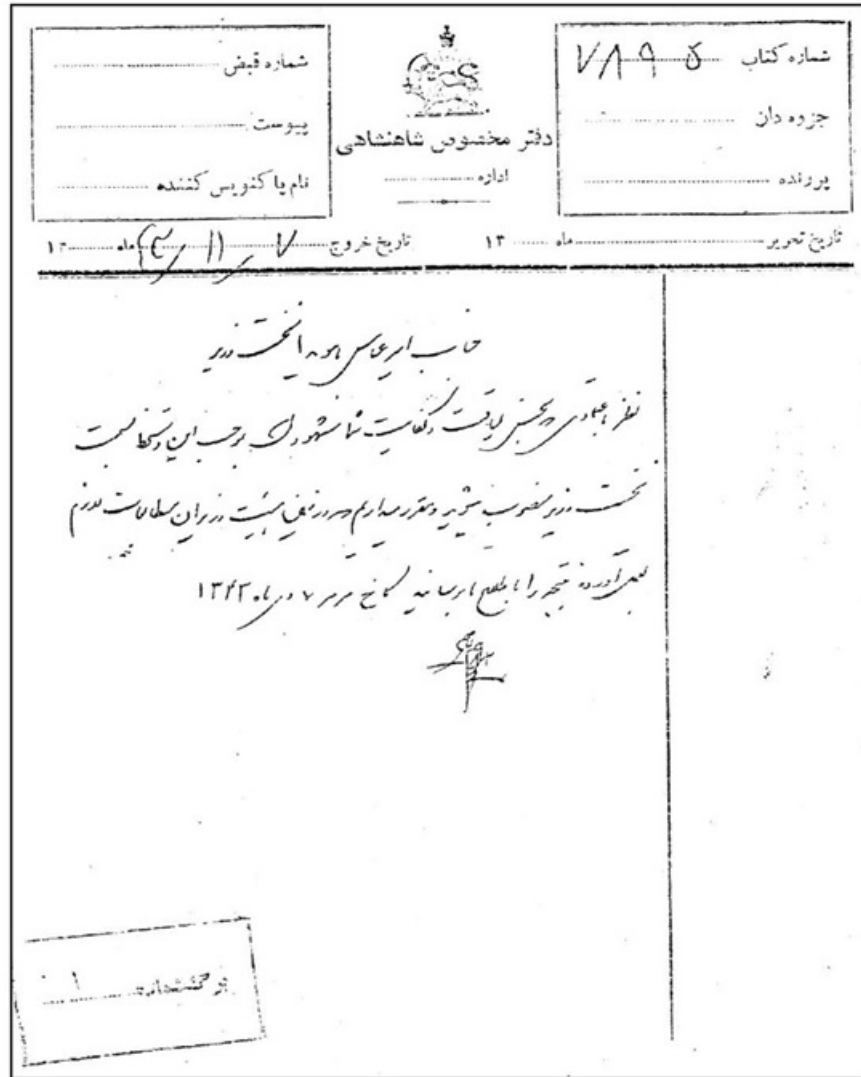 شماره کتاب ۷۸۹۵
جزوه دان
پرونده
دفتر مخصوص شاهنشاهی
اداره
شماره قبض
پیوست
نام پاکنویس کننده
تاریخ تحریر ماه ۱۳
تاریخ خروج ۷/۱۱/۴۳ ماه ۱۳
جناب امیر عباس هویدا نخست وزیر
نظر باعتمادی که بحسن لیاقت و کفایت شما مشهود است بموجب این دستخط بسمت
نخست وزیر منصوب میشوید و مقرر میداریم در معرفی هیئت وزیران مطالعات لازم
بعمل آورده نتیجه را باطلاع ما برسانید کاخ مرمر ۷ ماه ۱۳۴۳
برگشماره ۱